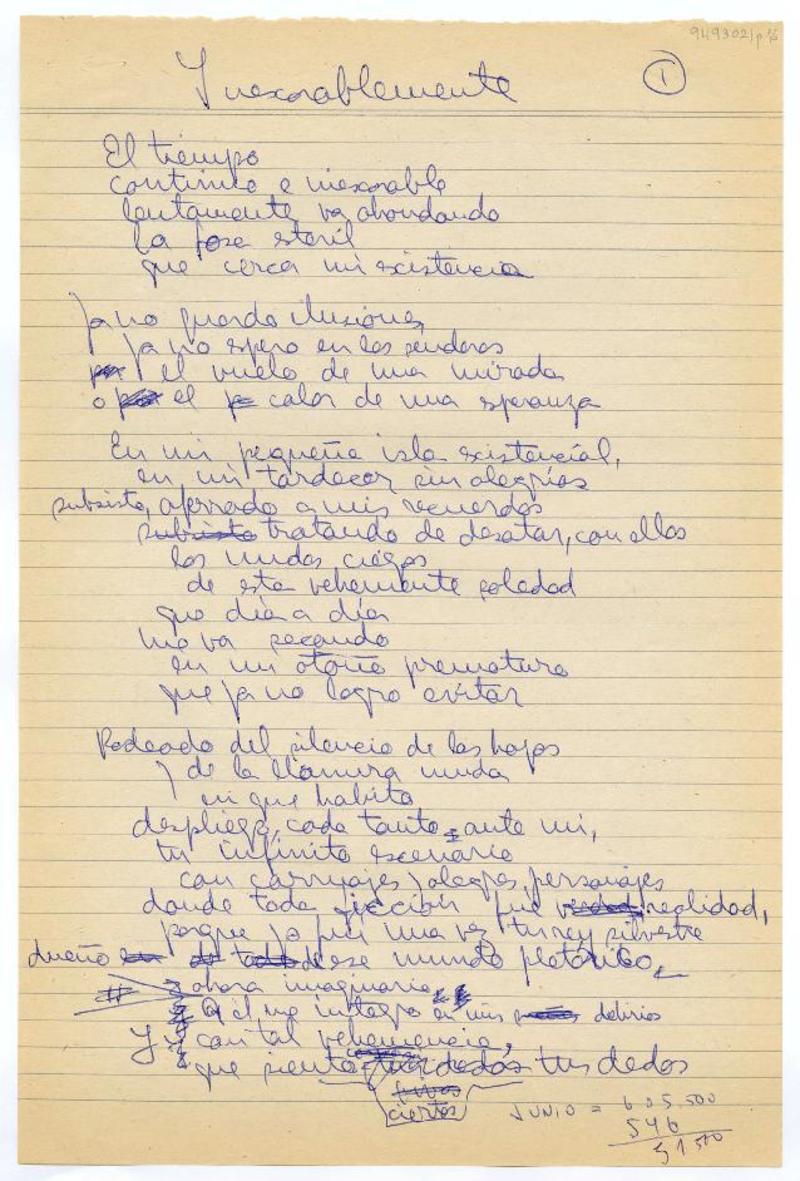 949302/p
Inexorablemente
1
El tiempo
continuo e inexorable
lentamente va ahondando
la fosa esteril
que cerca mi existencia
ya no guardo ilusiones
ya no espero en los senderos
el vuelo de una mirada
o el calor de una esperanza
En mi pequeña isla existencial,
en mi tardecer sin alegrías
subsisto, aferrado a mis recuerdos
subsisto tratando de desatar, con ellos
los nudos ciegos
de esta vehemente soledad
que día a día
me va secando
en un otoño prematuro
que ya no logro evitar
Rodeado del silencio de las hojas
y de la llanura muda
en que habito
despliego, cada tanto, ante mi,
tu infinito escenario
con carruajes y alegres personajes
donde toda ficción fue realidad,
porque yo fui una vez tu rey silvestre
dueño de ese mundo platónico
ahora imaginario
A él me integro en mis delirios
Y con tal vehemencia,
que siento tus dedos
ciertos
JUNIO = 605.500
546